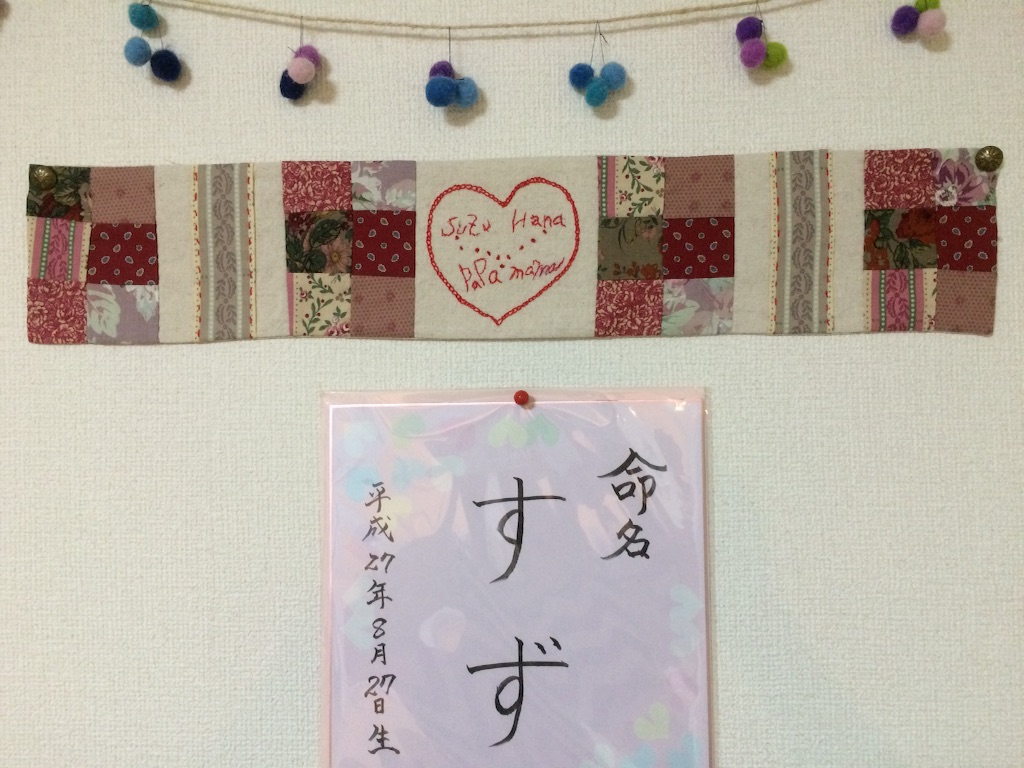 Suzu Hana
PaPa mama
命名
すず
平成27年8月27日生